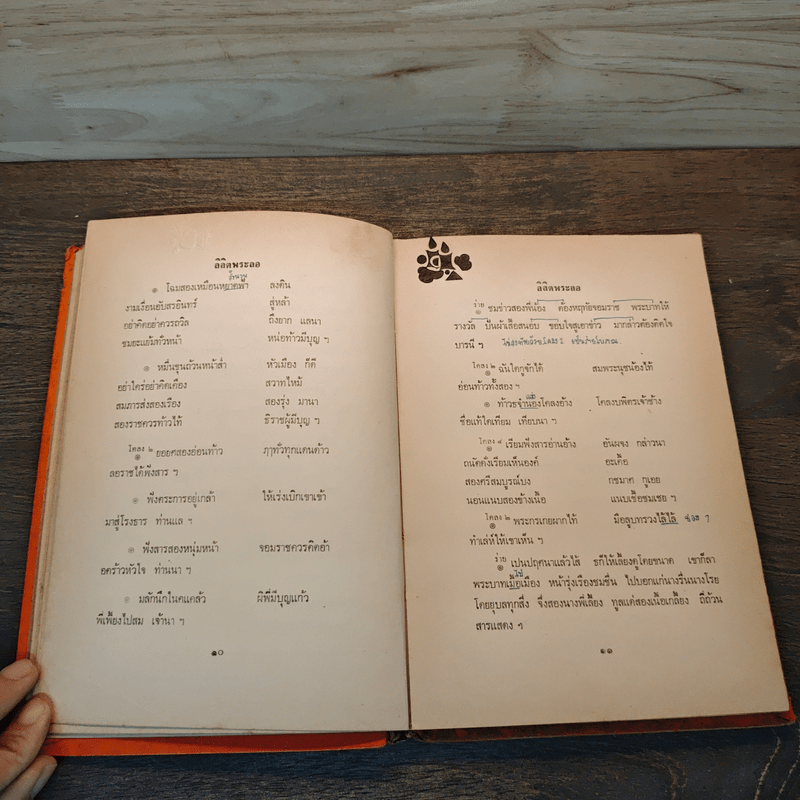 ลิลิตพระลอ
๏ โฉมสองเหมือนหยาดฟ้า ลงดิน
งามเงื่อนอัปสรอินทร์ สู่หล้า
อย่าคิดอย่าควรถวิล ถึงยาก แลนา
ชมยะแย้มทั่วหน้า หน่อท้าวมีบุญ ฯ
๏ หมื่นขุนถ้วนหน้าส่ำ หัวเมือง ก็ดี
อย่าใคร่อย่าคิดเคือง สวาทไหม้
สมภารส่งสองเรือง สองรุ่ง มานา
สองราชควรท้าวไท้ ธิราชผู้มีบุญ ฯ
โคลง ๒
๏ ยอยศสองอ่อนท้าว ฦๅทั่วทุกแดนด้าว
ลอราชได้ฟังสาร ฯ
๏ ฟังตระการอยู่เกล้า ให้เร่งเบิกเขาเข้า
มาสู่โรงธาร ท่านแล ฯ
๏ ฟังสารสองหนุ่มหน้า จอมราชควรคิดอ้า
อคร้าวหัวใจ ท่านนา ฯ
๏ มลักนึกในคแคล้ว ผิพี่มีบุญแก้ว
พี่เพี้ยงไปสม เจ้านา ฯ
๑๐
ลิลิตพระลอ
ร่าย
๏ ชมข่าวสองพี่น้อง ต้องหฤทัยจอมราช พระบาทให้
รางวัล ปันผ้าเสื้อสนอบ ขอบใจสูเอาข่าว มากล่าวต้องติดใจ
บารนี ฯ
โคลง ๒
๏ ฉันใดกูจักได้ สมพระนุชน้องไท้
อ่อนท้าวทั้งสอง ฯ
๏ ท้าวธจำนองโคลงอ้าง โคลงบพิตรเจ้าช้าง
ชื่อแท้ใดเทียม เทียบนา ฯ
โคลง ๔
๏ เรียมฟังสารอ่านอ้าง อันผจง กล่าวนา
ถนัดดั่งเรียมเห็นองค์ อะเคื้อ
สองศรีสมบูรณ์บง กชมาศ กูเอย
นอนแนบสองข้างเนื้อ แนบเชื้อชมเชย ฯ
โคลง ๒
๏ พระกรเกยผากไท้ มือลูบทรวงไล้ไล้
ทำเล่ห์ให้เขาเห็น ฯ
ร่าย
๏ เปนปฤศนาแล้วไส้ ธก็ให้เลี้ยงดูโดยขนาด เขาก็ลา
พระบาทเมื้อเมือง หน้ารุ่งเรืองชมชื่น ไปบอกแก่นางรื่นนางโรย
โดยยุบลทุกสิ่ง จึ่งสองนางพี่เลี้ยง ทูลแด่สองเนื้อเกลี้ยง ถี่ถ้วน
สารแสดง ฯ
๑๑